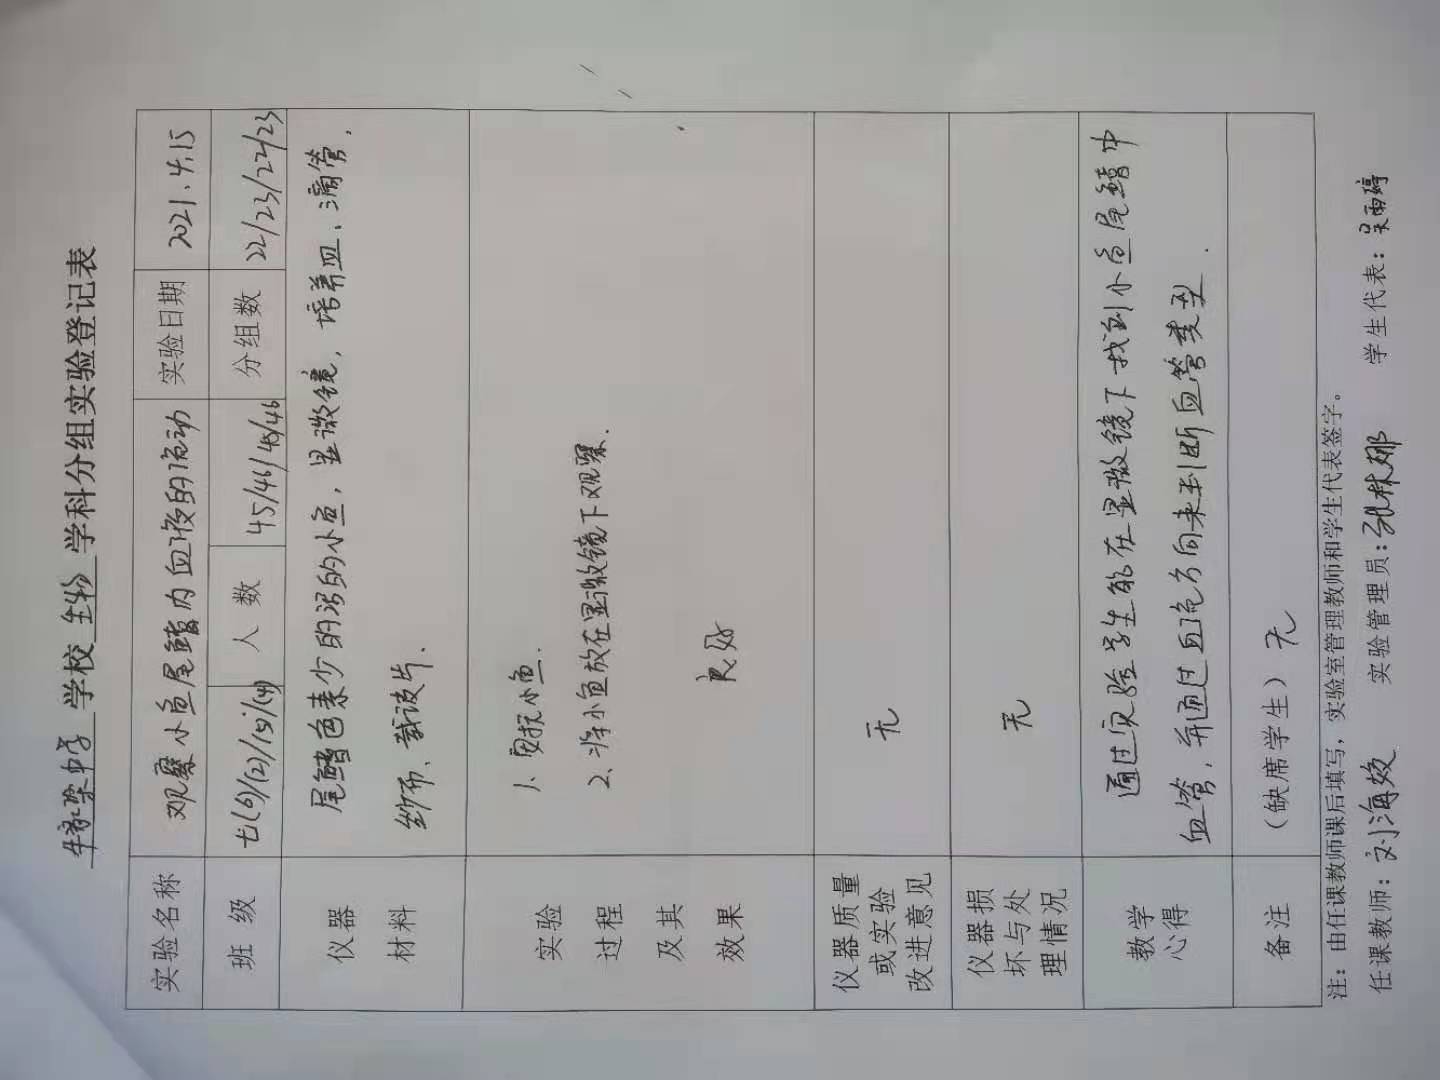 牛家梁中学 学校 生物 学科分组实验登记表
实验名称 观察小鱼尾鳍内血液的流动 实验日期 2021.4.15
班 级 七(6)/(2)/(5)/(4) 人 数 45/46/45/46 分组数 22/23/22/23
仪器
材料
尾鳍色素少的活的小鱼，显微镜，培养皿、滴管，
纱布、载玻片．
实验
过程
及其
效果
1、包扎小鱼．
2、将小鱼放在显微镜下观察．
良好
仪器质量
或实验
改进意见
无
仪器损
坏与处
理情况
无
教学
心得
通过实验学生能在显微镜下找到小鱼尾鳍中
血管，并通过血流方向来判断血管类型．
备注 （缺席学生）无
注：由任课教师课后填写，实验室管理教师和学生代表签字。
任课教师：刘海姣 实验管理员：张林娜 学生代表：吴雨婷